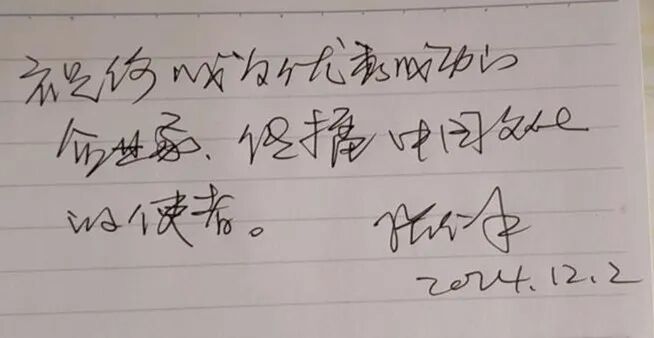 祝你成为优秀成功的
企业家、传播中国文化
的使者。 张
2024.12.2